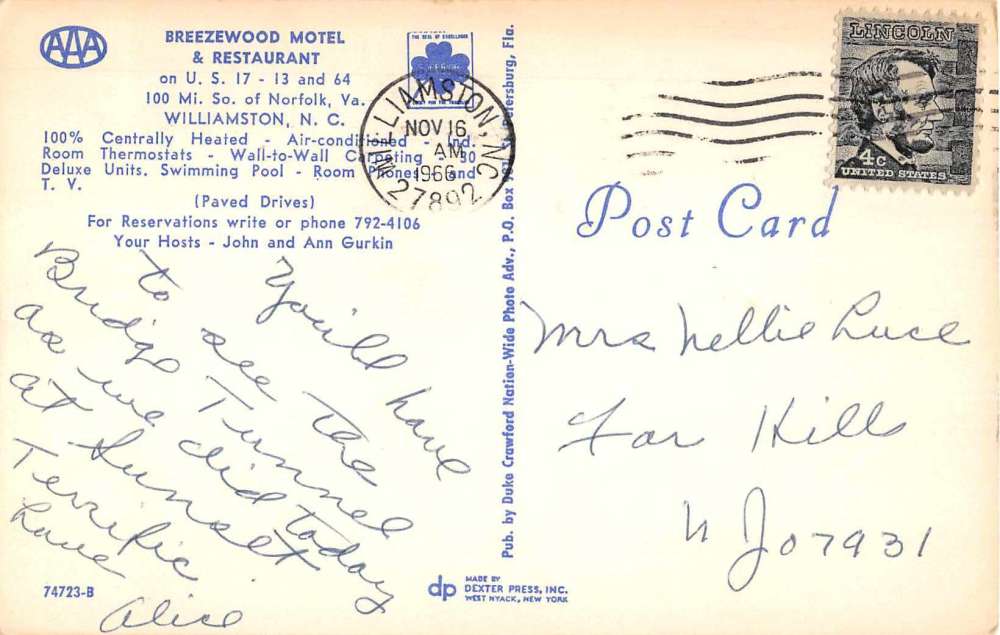 AAA
BREEZEWOOD MOTEL
& RESTAURANT
on U. S. 17 - 13 and 64
100 Mi. So. of Norfolk, Va.
WILLIAMSTON, N. C.
100% Centrally Heated - Air-conditioned - Ind.
Room Thermostats - Wall-to-Wall Carpeting - 50
Deluxe Units. Swimming Pool - Room Phones and
T. V.
(Paved Drives)
For Reservations write or phone 792-4106
Your Hosts - John and Ann Gurkin
You'll have
to see the
Bridge Tunnel
as we did today
at sunset
Terrific
Love
Alice
74723-B
WILLIAMSTON, NC
NOV 16
AM
1966
27892
Pub. by Duke Crawford Nation-Wide Photo Adv., P.O. Box Petersburg, Fla.
dp MADE BY
DEXTER PRESS, INC.
WEST NYACK, NEW YORK
LINCOLN
4c
UNITED STATES
Post Card
Mrs Nellie Luce
Far Hills
N J 07931